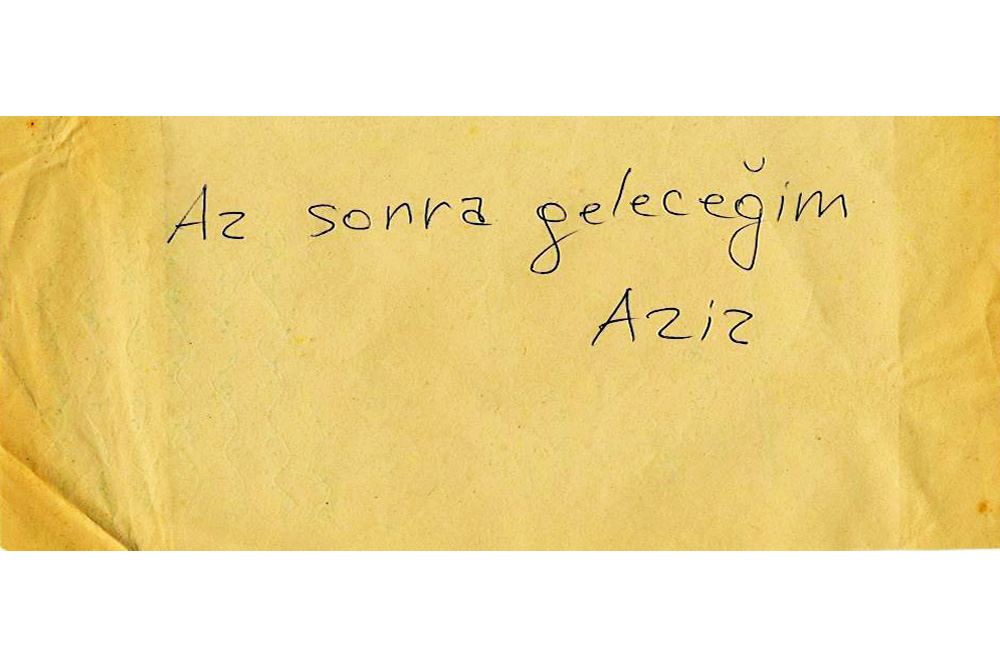 Az sonra geleceğim
Aziz